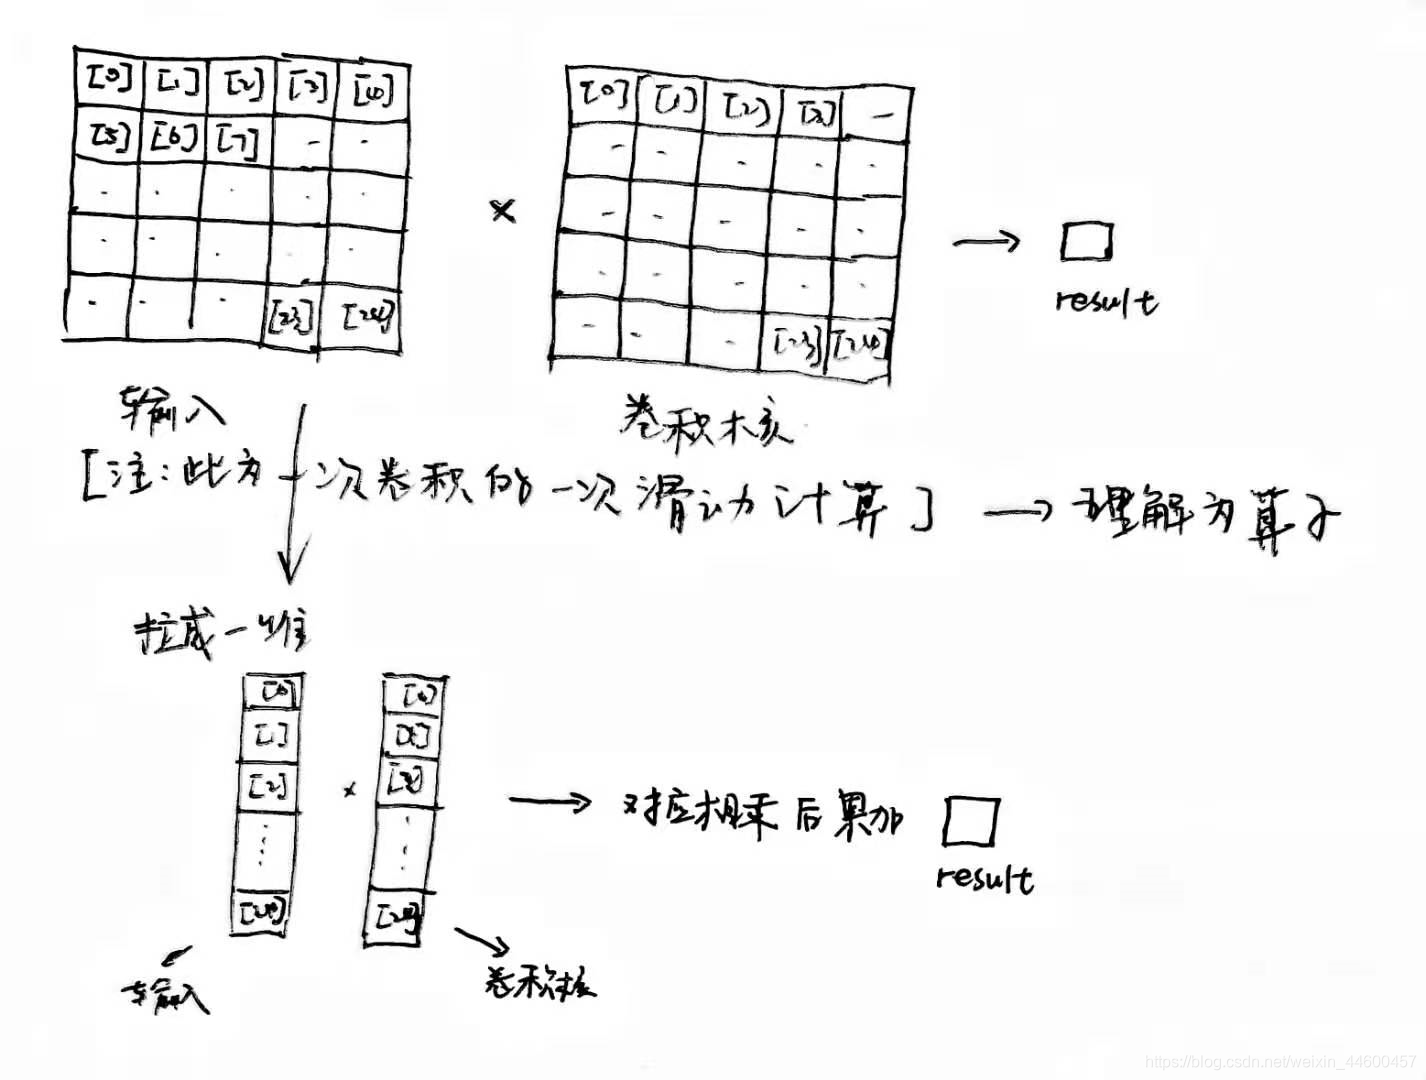 [0] [1] [2] [3] [4]
[5] [6] [7] - -
[23] [24]
×
[0] [1] [2] [3] -
[23] [24]
→ result
输入
卷积核
[注:此为一次卷积的一次滑动计算] → 理解为算子
拉成一维
[0]
[1]
[2]
[24]
×
[0]
[1]
[2]
[24]
→ 对应相乘后累加
result
输入
卷积核
https://blog.csdn.net/weixin_44600457